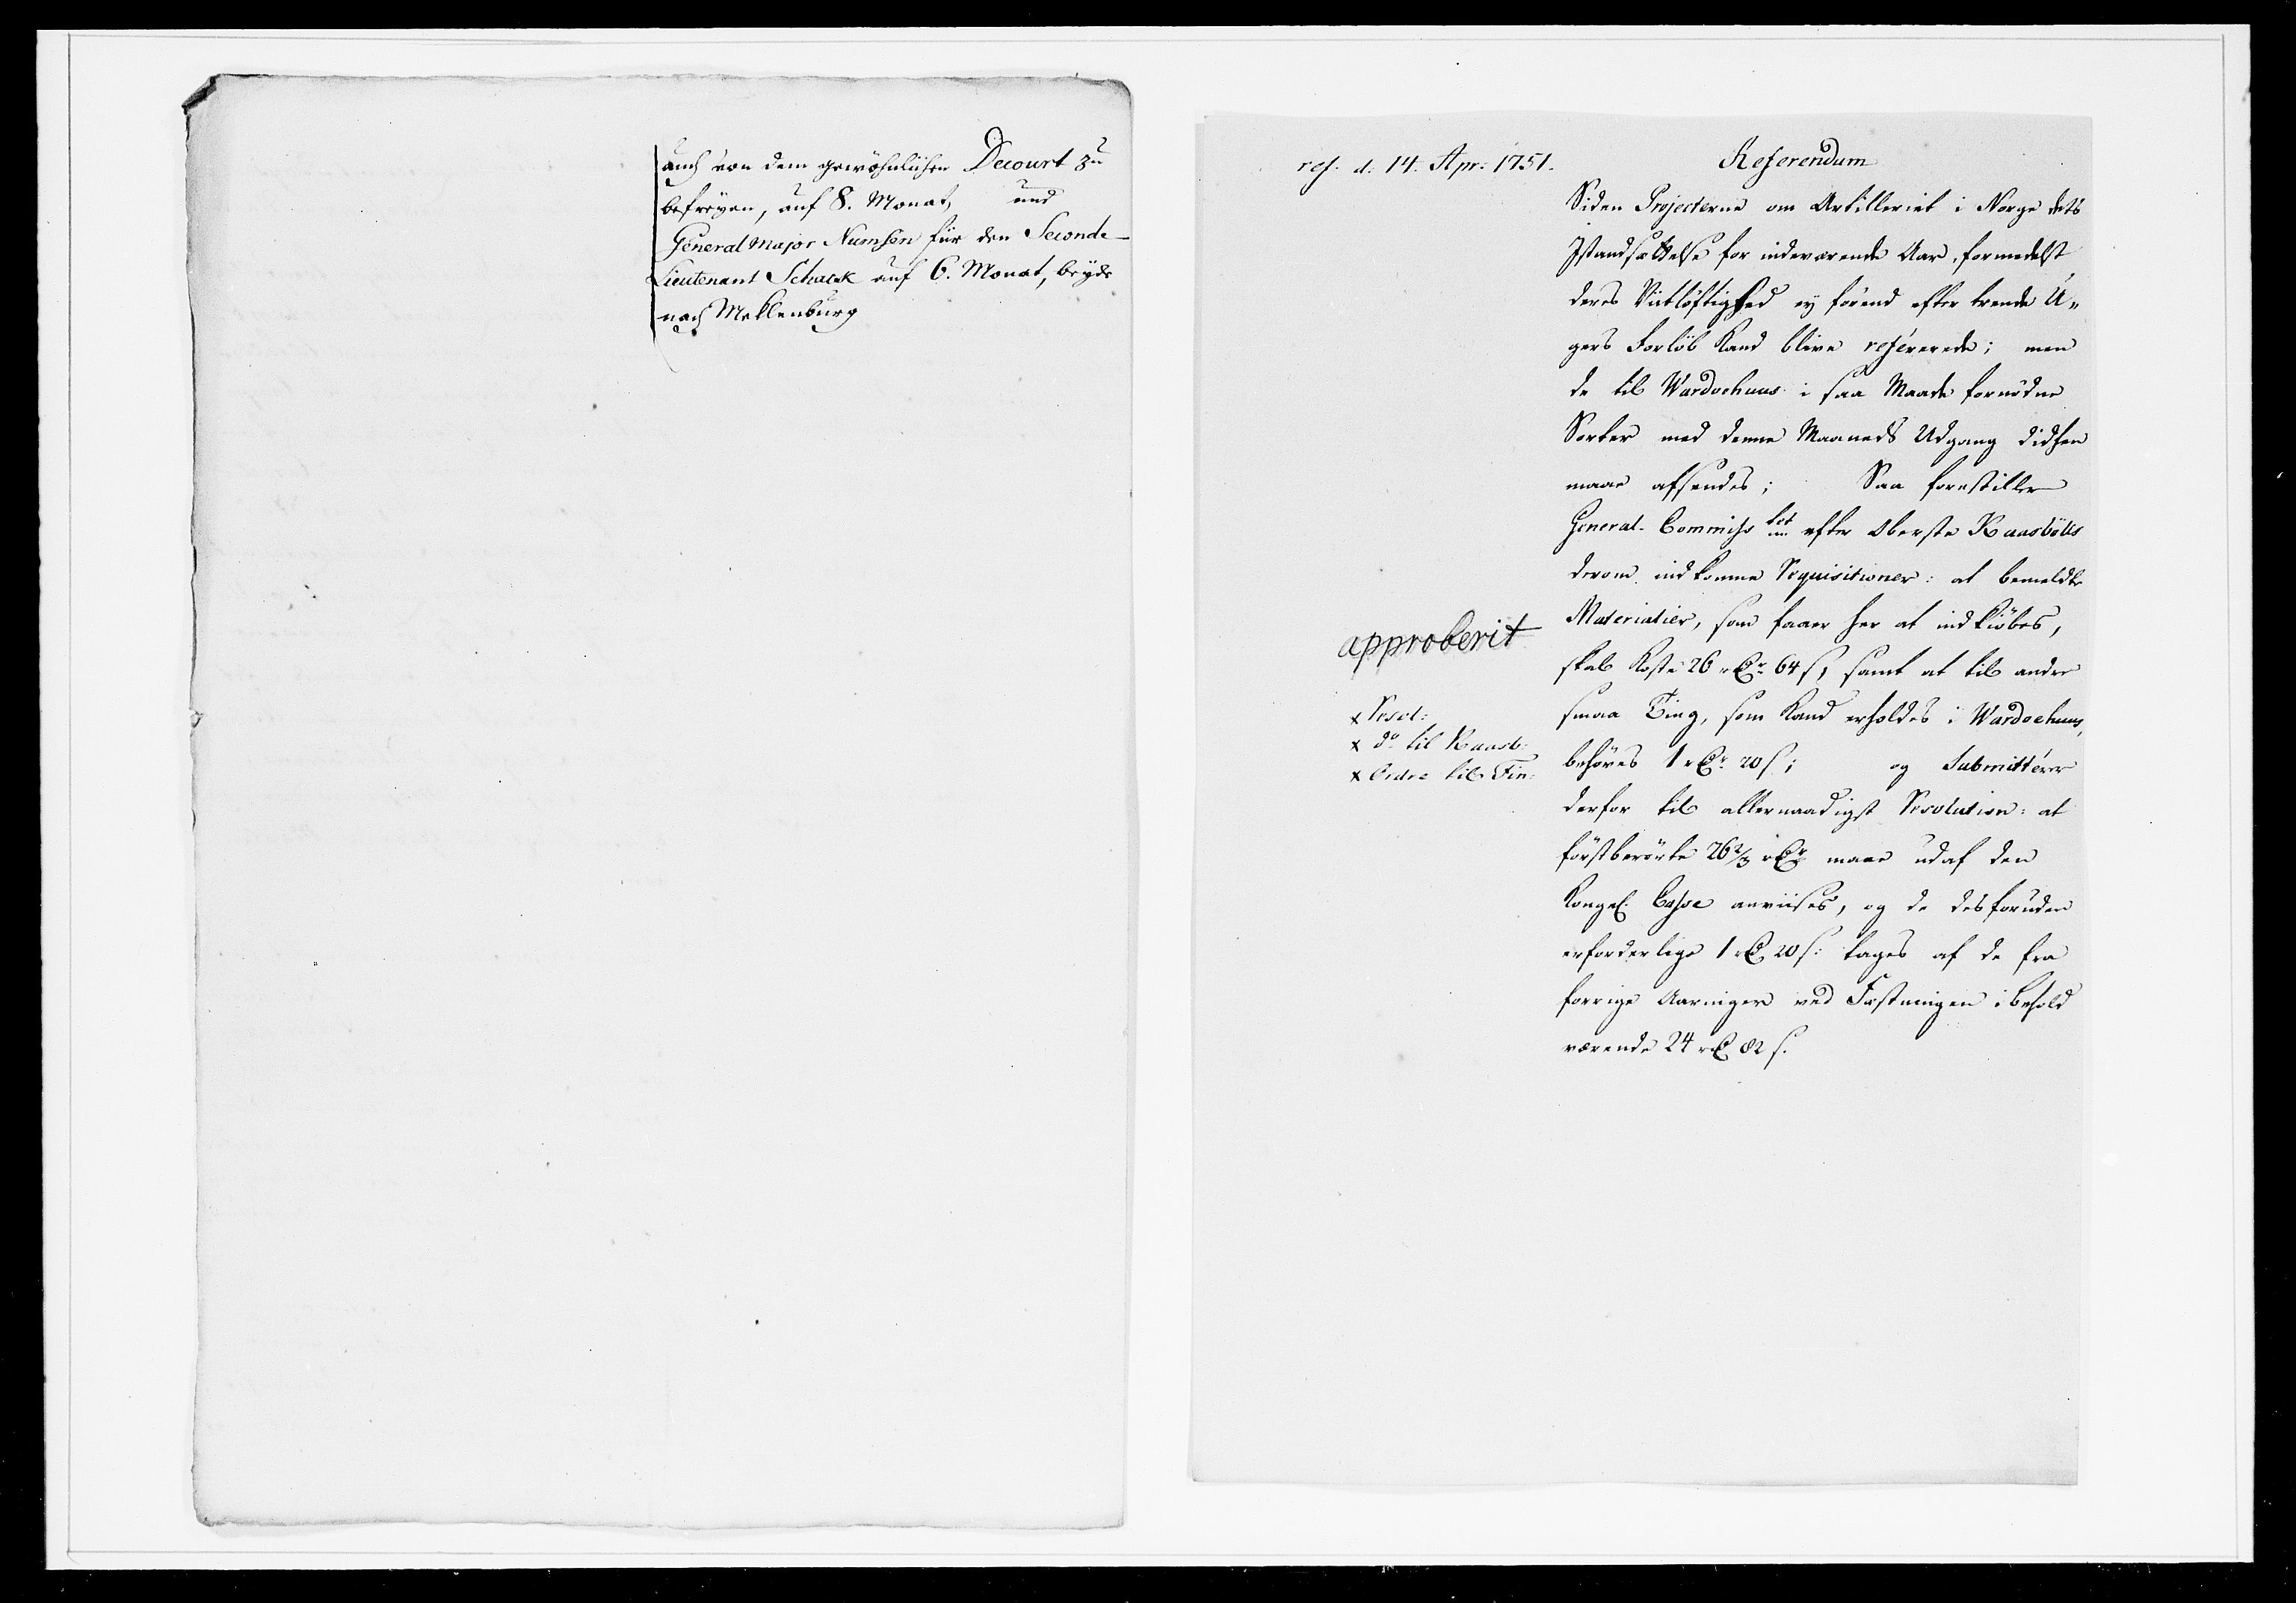 auch von dem gewöhnlichen Decourt zu
befreyen, auf 8. Monat, und
General Major Numsen für den Seconde-
Lieutenant Schack auf 6. Monat, beyde
nach Meklenburg
ref. d. 14. Apr: 1751.
Referendum
Siden Projecterne om Artilleriet i Norge dets
Istandsættelse for indeværende Aar, formedelst
deres Vidtløftighed ey førend efter trende U-
gers Forløb kand blive refererede; men
de til Wardoehuus i saa Maade fornødne
Sorter med denne Maaneds Udgang didhen
maae afsendes; Saa forestiller
General-Commiss^tet efter Oberste Kaasbølls
derom indkomne Requisitioner: at bemeldte
Materialier, som faaer her at indkiøbes,
skal koste 26 rdr 64 s, samt at til andre
smaa Ting, som kand erholdes i Wardoehuus,
behøves 1 rdr 20 s; og Submitterer
derfor til allernaadigst Resolution: at
førstberørte 26 2/3 rdr maae udaf den
Kongel. Casse anviises, og de desforuden
erforderlige 1 rd 20 s: tages af de fra
forrige Aaringer ved Fæstningen i behold
værende 24 rd 82 s.
approberit
x Resol:
x do til Kaasb:
x Ordre til Fin: